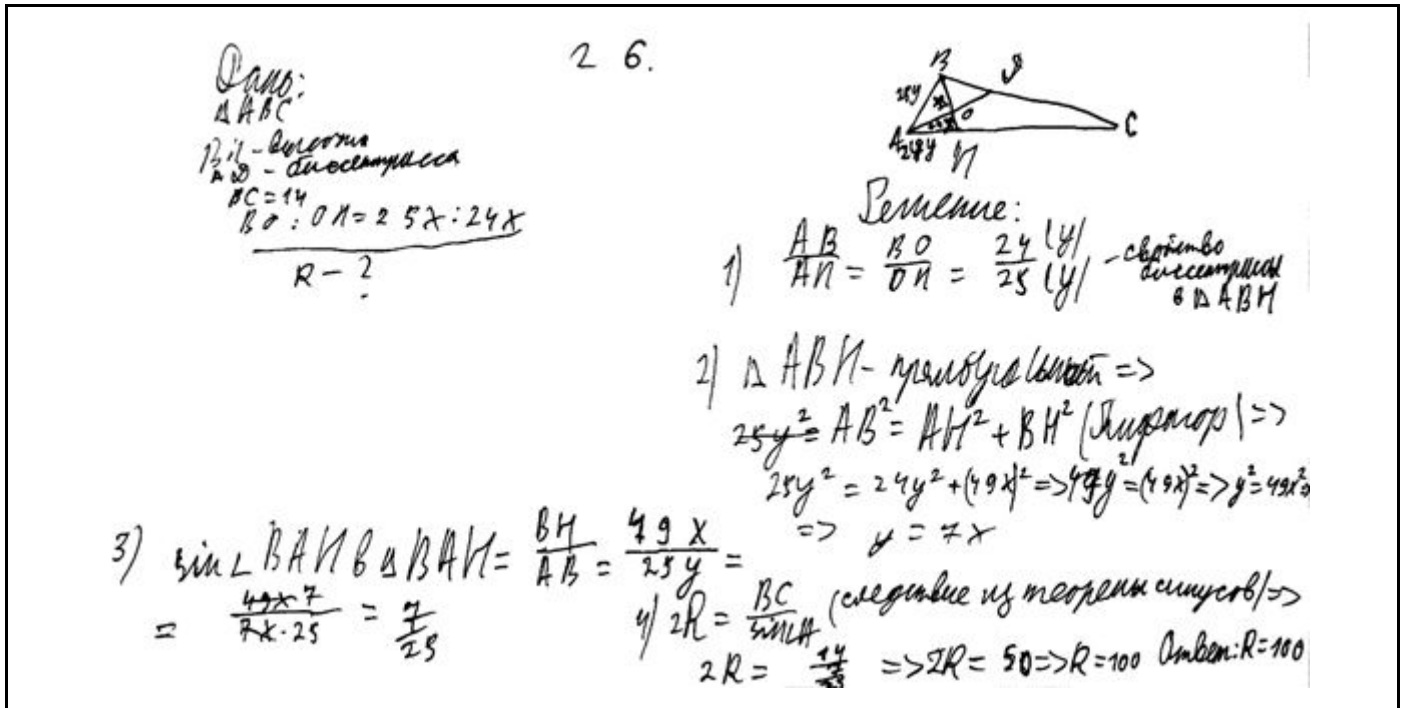 26.
Дано:
Δ ABC
BH - высота
AD - биссектрисса
BC = 14
BO : OH = 25x : 24x
R - ?
B D
25y O C
A 24y H
Решение:
1) AB/AH = BO/OH = 24(y)/25(y) - свойство биссектрисы в Δ ABH
2) Δ ABH - прямоугольный =>
AB² = AH² + BH² (Пифагор) =>
25y² = 24y² + (49x)² => 49y² = (49x)² => y² = 49x² =>
=> y = 7x
3) sin ∠ BAH в Δ BAH = BH/AB = 49x/25y =
= 49x 7/7x · 25 = 7/25
4) 2R = BC/sin∠A (следствие из теоремы синусов) =>
2R = 14/7/25 => 2R = 50 => R = 100 Ответ: R = 100